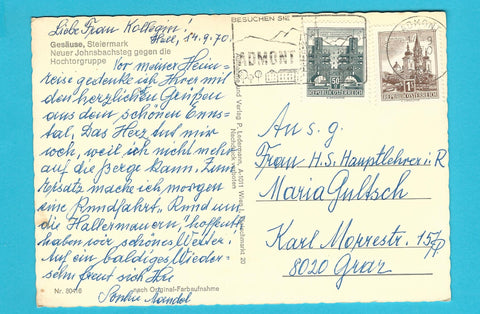 Liebe Frau Kollegin!
Hall, 14.9.70.
Gesäuse, Steiermark
Neuer Johnsbachsteg gegen die
Hochtorgruppe
Vor meiner Heim-
reise gedenke ich Ihrer mit
den herzlichen Grüßen
aus dem schönen Enns-
tal. Das Herz tut mir
weh, weil ich nicht mehr
auf die Berge kann. Zum
Ersatz mache ich morgen
eine Rundfahrt „Rund um
die Hallermauern", hoffentl.
haben wir schönes Wetter!
Auf ein baldiges Wieder-
sehn freut sich Ihre
Mandol
Nr. 80416
nach Original-Farbaufnahme
Verlag P. Ledermann, A-1011 Wien
Nachdruck verboten
BESUCHEN SIE
ADMONT
50
REPUBLIK ÖSTERREICH
1S
REPUBLIK ÖSTERREICH
ADMONT
An s. g.
Frau H. S. Hauptlehrer i. R
Maria Gultsch
Karl Morrestr.
8020 Graz